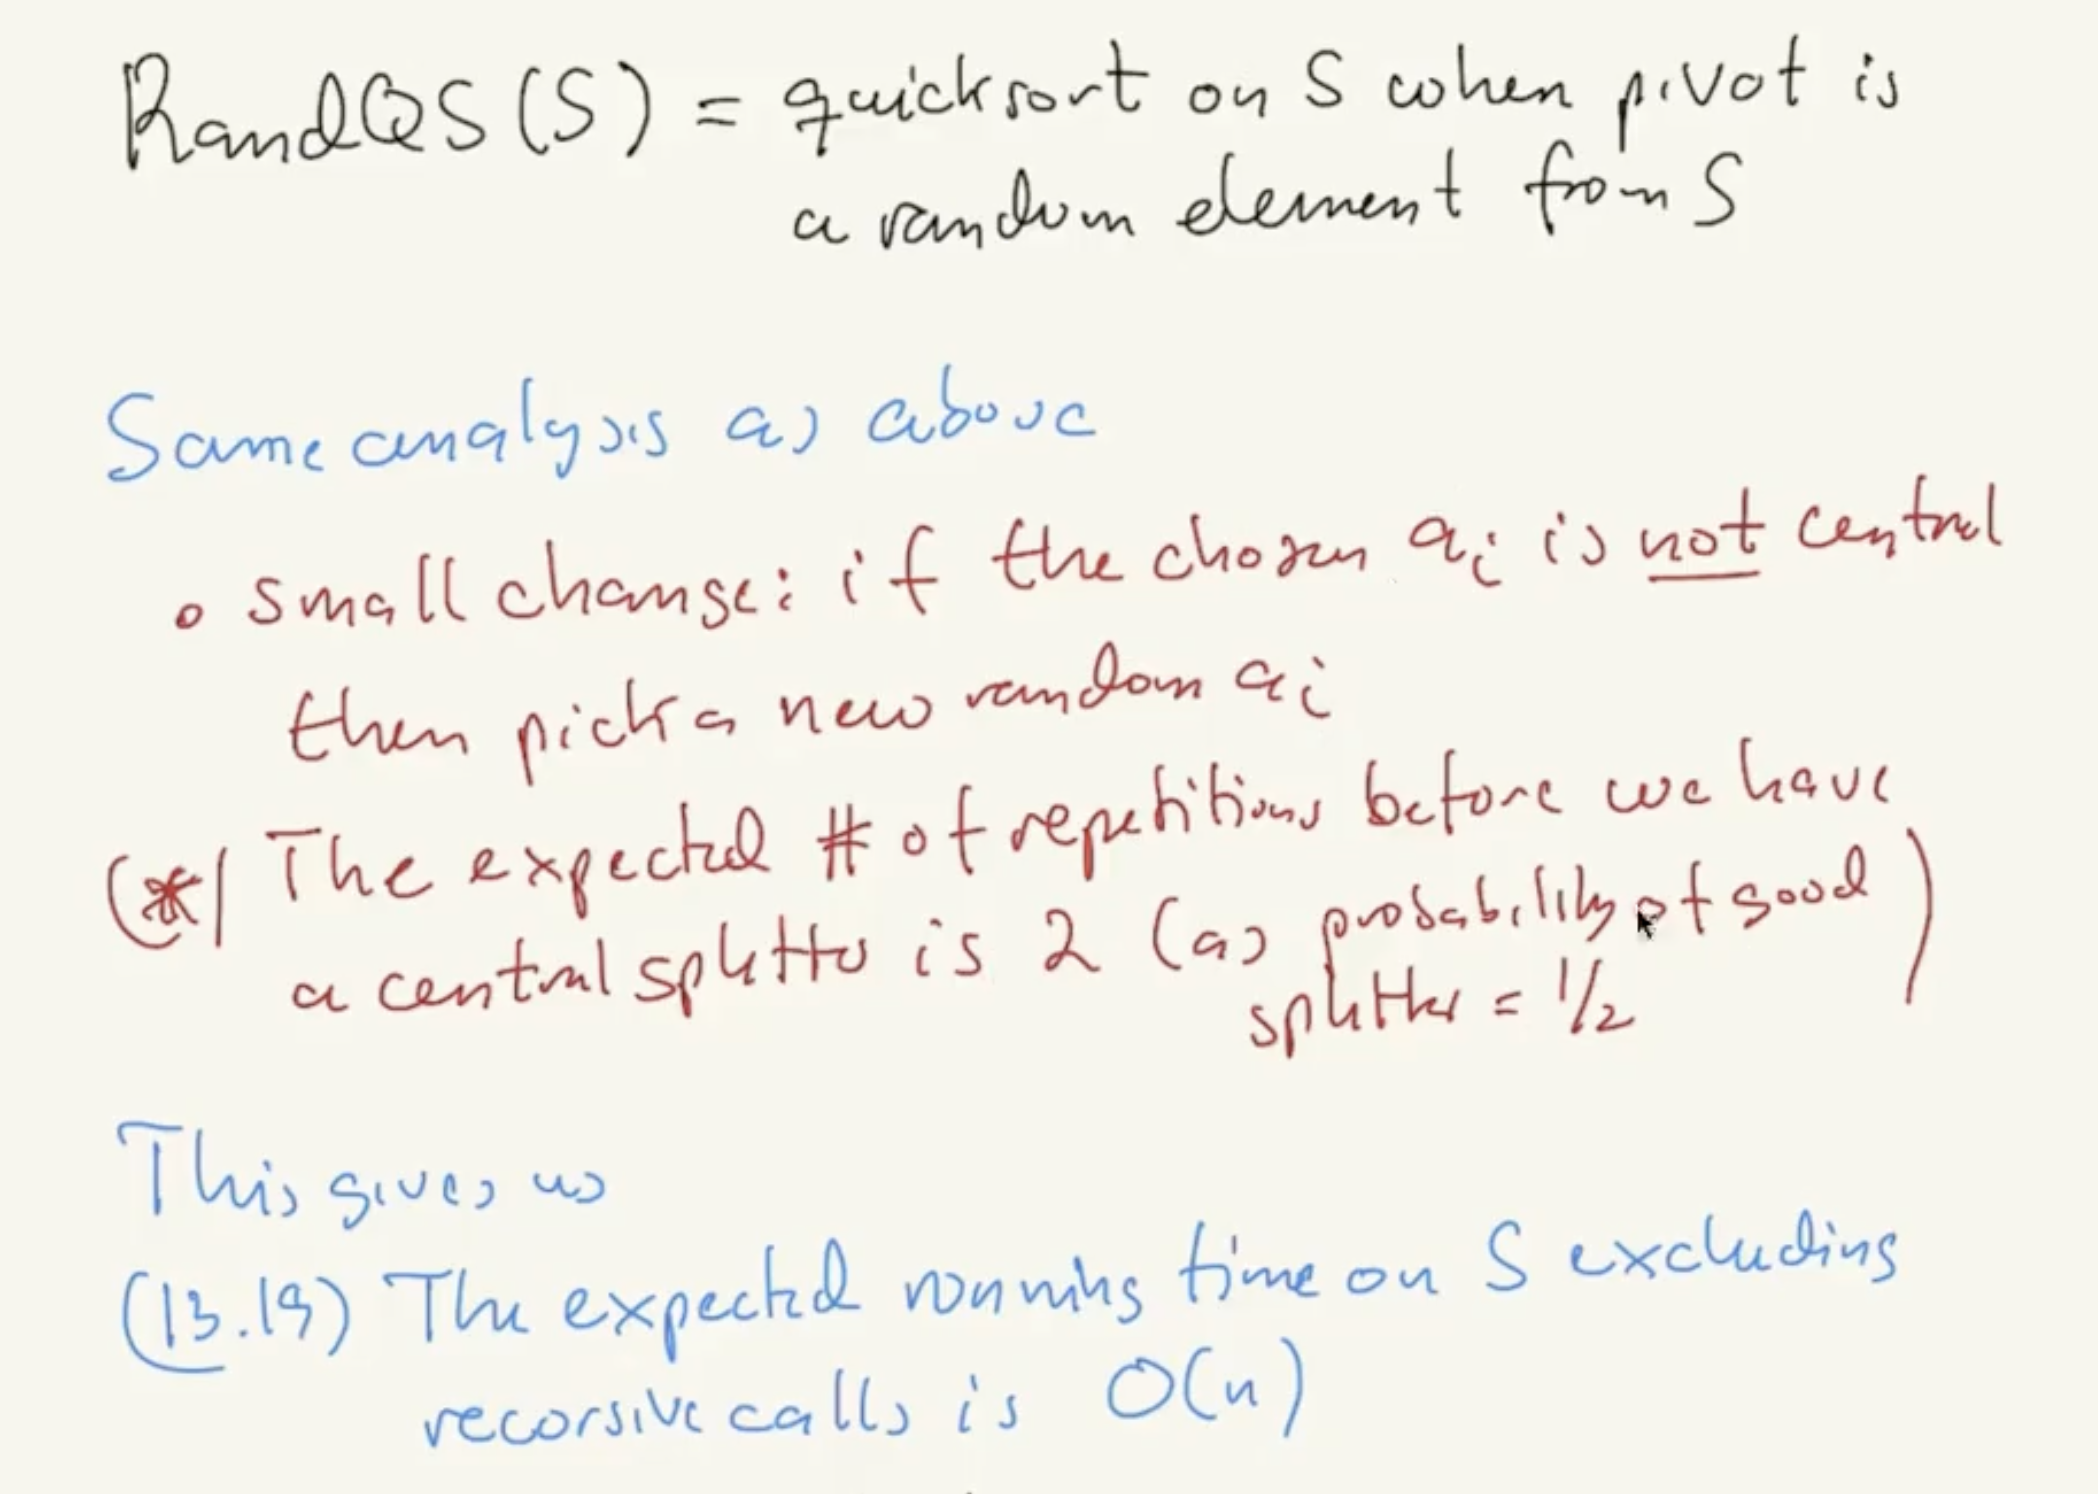 RandQS(S) = quicksort on S when pivot is
a random element from S
Same analysis as above
• small change: if the chosen aᵢ is not central
then pick a new random aᵢ
(*) The expected # of repetitions before we have
a central splitter is 2 (as probability of good
splitter = 1/2)
This gives us
(13.19) The expected running time on S excluding
recorsive calls is O(n)